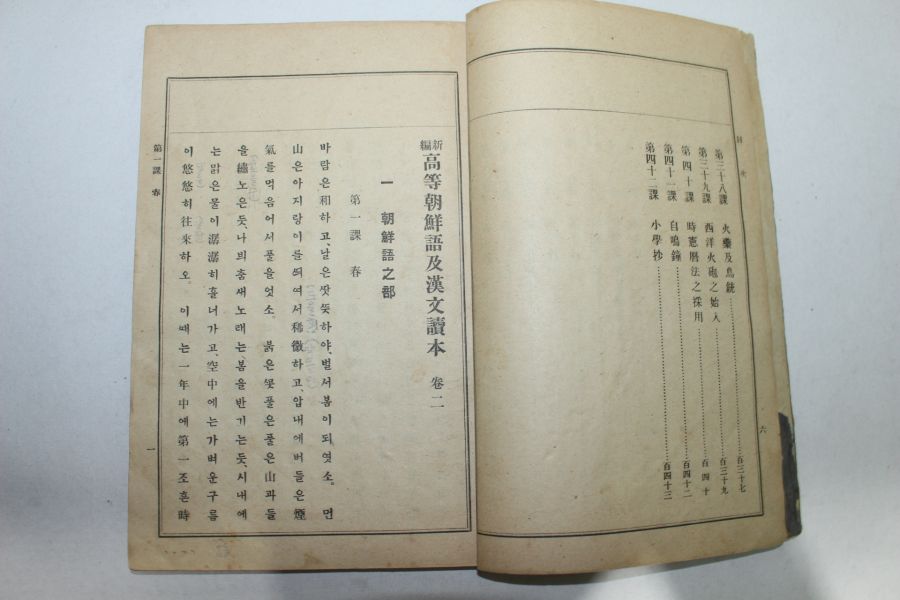 目次
第三十八課 火藥及鳥銃……百三十七
第三十九課 西洋火砲之始入……百三十九
第四十課 時憲曆法之採用……百四十
第四十一課 自鳴鐘……百四十二
第四十二課 小學抄……百四十三
六
新編 高等朝鮮語及漢文讀本 卷二
一 朝鮮語之部
第一課 春
바람은和하고、날은ᄯᅡᆺᄯᅳᆺ하야、벌서봄이되엿소。 먼
山은아지랑이를ᄯᅴ여서稀微하고、압내에버들은煙
氣를먹음어서푸를엇소。 붉은ᄭᅩᆺ풀은풀은山과들
을繡노은듯、나븨춤새노래는봄을반기는듯、시내에
는맑은물이潺潺히흘너가고、空中에는가벼운구름
이悠悠히往來하오。 이ᄯᅢ는一年中에第一조흔時
第一課 春
一